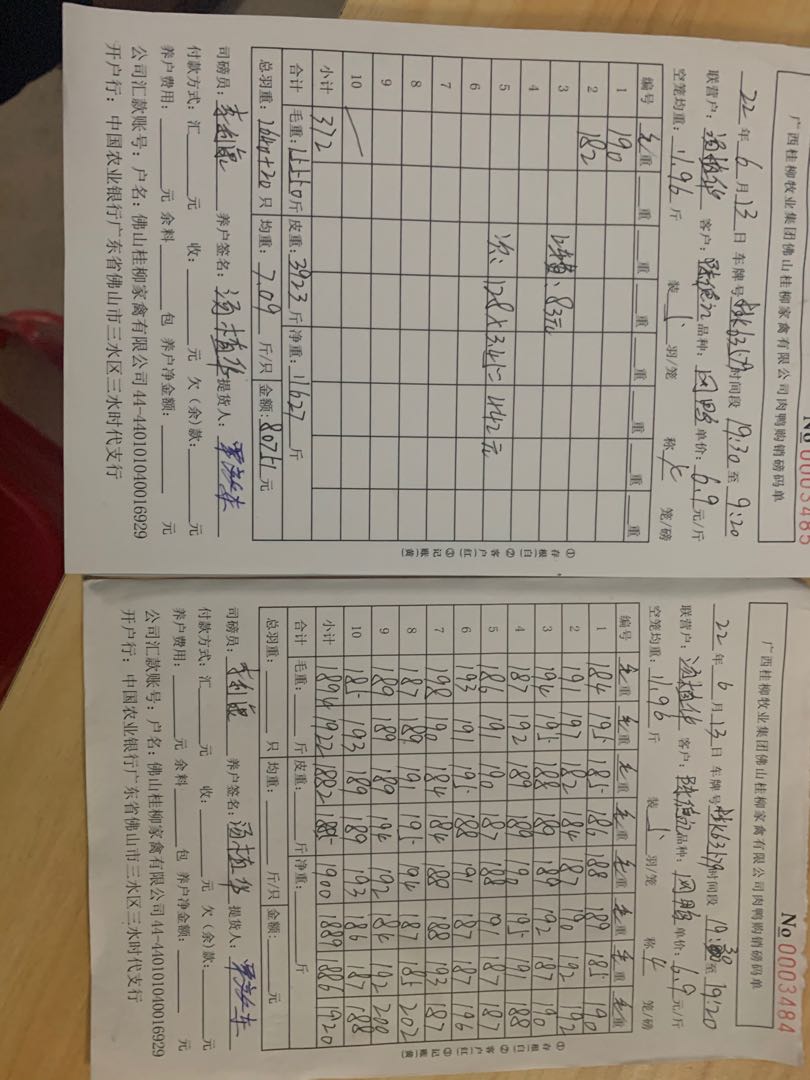 广西桂柳牧业集团佛山桂柳家禽有限公司肉鸭购销磅码单
No 0003485
22 年 6 月 13 日 车牌号 时间段 19:30 至 9:20
联营户: 汤植华 客户: 品种: 单价: 6.9 元/斤
空笼均重: 11.96 斤 装 5 羽/笼 称 笼/磅
编号 毛重 重 重 重 重 重 重 重
1 190
2 182
3 83元
4
5 次: 128×3.45=442元
6
7
8
9
10
小计 372
合计 毛重: 15550 斤 皮重: 3923 斤 净重: 11627 斤
总羽重: 1640+20 只 均重: 7.09 斤/只 金额: 80751 元
司磅员: 养户签名: 汤植华 提货人:
付款方式: 汇 元 收: 元 欠(余)款: 元
养户费用: 元 余料 包 养户净金额: 元
公司汇款账号: 户名: 佛山桂柳家禽有限公司 44-440101040016929
开户行: 中国农业银行广东省佛山市三水区三水时代支行
①存根(白) ②客户(红) ③记账(黄)
广西桂柳牧业集团佛山桂柳家禽有限公司肉鸭购销磅码单
No 0003484
22 年 6 月 13 日 车牌号 时间段 19:30 至 19:20
联营户: 汤植华 客户: 品种: 单价: 6.9 元/斤
空笼均重: 11.96 斤 装 5 羽/笼 称 4 笼/磅
编号 毛重 毛重 毛重 毛重 毛重 毛重 毛重 毛重
1 184 195 185 186 188 189 185 190
2 191 197 182 184 187 190 192 192
3 194 195 188 189 189 192 187 190
4 187 192 189 189 190 195 191 188
5 186 191 190 187 188 191 187 187
6 193 191 195 188 191 187 187 196
7 198 190 184 184 188 188 193 187
8 187 189 191 195 194 187 185 202
9 189 189 189 194 192 184 192 200
10 185 193 189 189 193 186 187 188
小计 1894 1922 1882 1885 1900 1889 1886 1920
合计 毛重: 斤 皮重: 斤 净重: 斤
总羽重: 只 均重: 斤/只 金额: 元
司磅员: 养户签名: 汤植华 提货人:
付款方式: 汇 元 收: 元 欠(余)款: 元
养户费用: 元 余料 包 养户净金额: 元
公司汇款账号: 户名: 佛山桂柳家禽有限公司 44-440101040016929
开户行: 中国农业银行广东省佛山市三水区三水时代支行
①存根(白) ②客户(红) ③记账(黄)